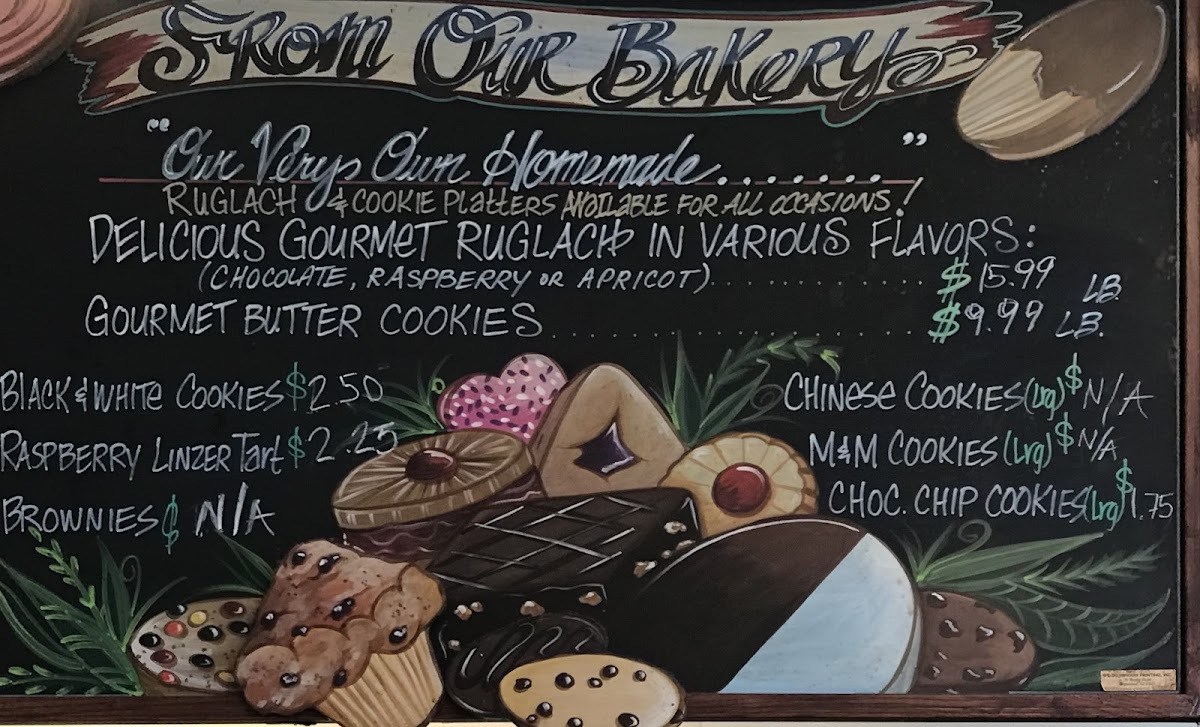 From Our Bakery
"Our Very Own Homemade......."
RUGLACH & COOKIE PLATTERS AVAILABLE FOR ALL OCCASIONS!
DELICIOUS GOURMET RUGLACH IN VARIOUS FLAVORS:
(CHOCOLATE, RASPBERRY OR APRICOT).................$15.99 LB.
GOURMET BUTTER COOKIES..........................$9.99 LB.
BLACK & WHITE COOKIES $2.50
RASPBERRY LINZER TART $2.25
BROWNIES $ N/A
CHINESE COOKIES (Lrg) $N/A
M&M COOKIES (Lrg) $N/A
CHOC. CHIP COOKIES (Lrg) $1.75